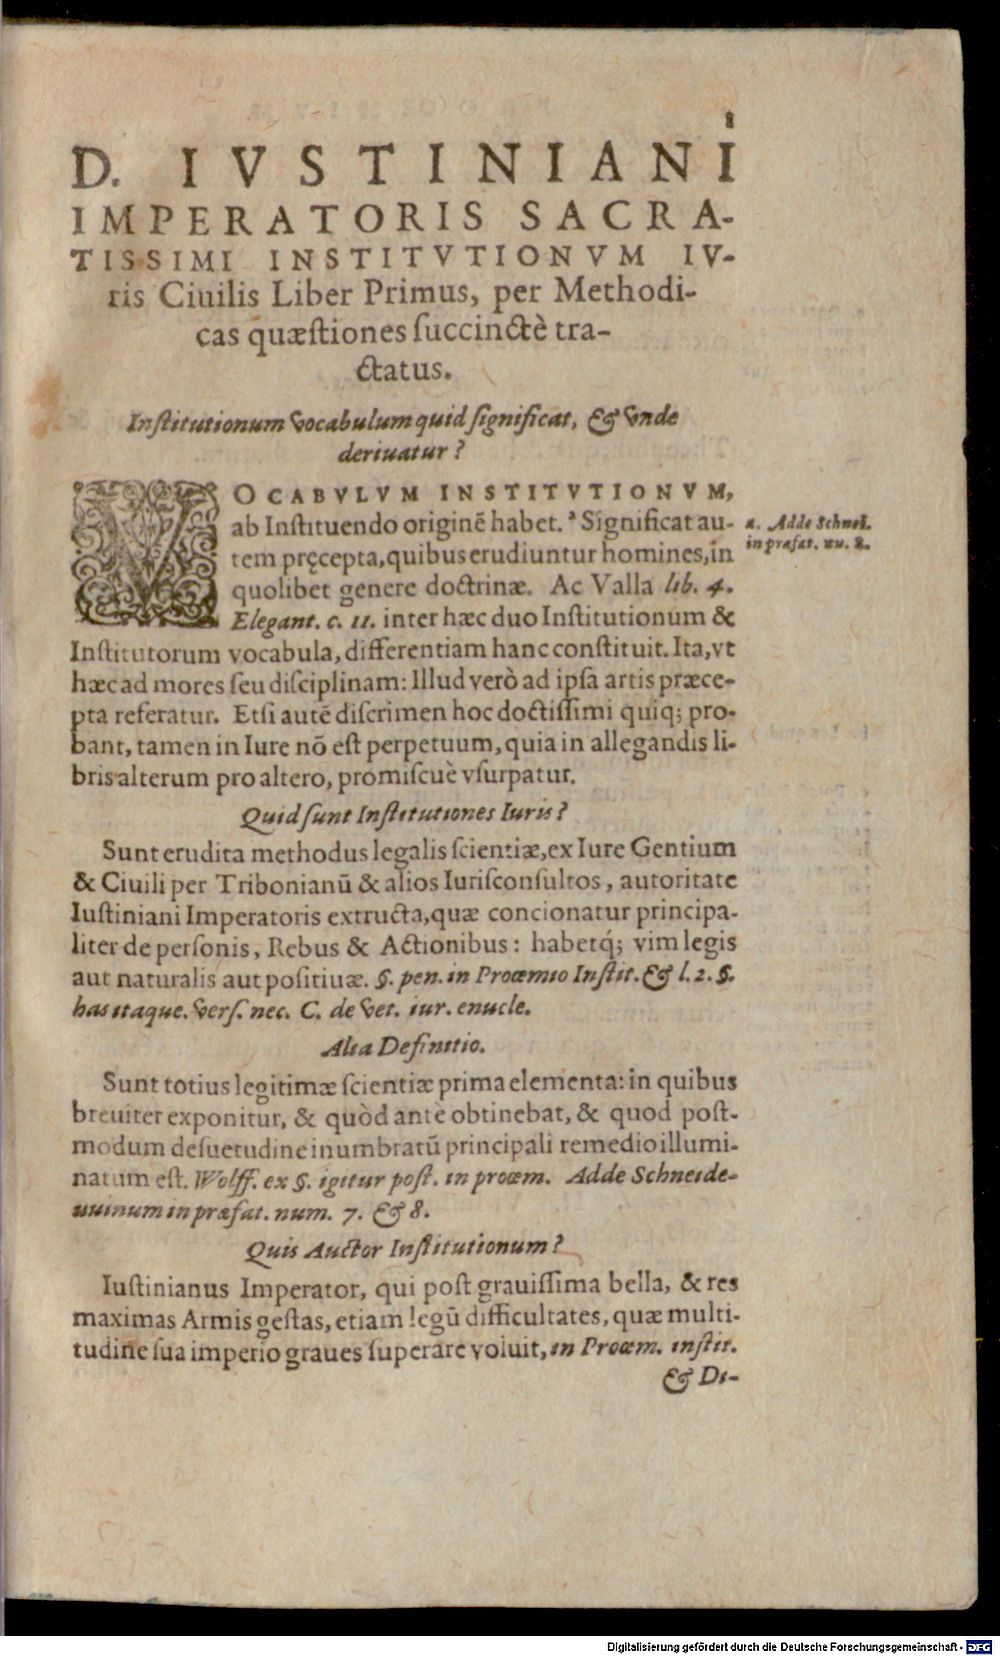 1
D. IVSTINIANI
IMPERATORIS SACRA-
TISSIMI INSTITVTIONVM IV-
ris Ciuilis Liber Primus, per Methodi-
cas quæſtiones ſuccinctè tra-
ctatus.
Inſtitutionum vocabulum quid ſignificat, & vnde
deriuatur?
VOCABVLVM INSTITVTIONVM,
ab Inſtituendo originē habet. ᵃ Significat au-
tem pręcepta, quibus erudiuntur homines, in
quolibet genere doctrinæ. Ac Valla lib. 4.
Elegant. c. 11. inter hæc duo Inſtitutionum &
Inſtitutorum vocabula, differentiam hanc conſtituit. Ita, vt
hæc ad mores ſeu diſciplinam: Illud verò ad ipſa artis præce-
pta referatur. Etſi autē diſcrimen hoc doctiſſimi quiq; pro-
bant, tamen in Iure nō eſt perpetuum, quia in allegandis li-
bris alterum pro altero, promiſcuè vſurpatur.
a. Adde Schnei.
in præfat. nu. 8.
Quid ſunt Inſtitutiones Iuris?
Sunt erudita methodus legalis ſcientiæ, ex Iure Gentium
& Ciuili per Tribonianū & alios Iuriſconſultos, autoritate
Iuſtiniani Imperatoris extructa, quæ concionatur principa-
liter de perſonis, Rebus & Actionibus: habetq́; vim legis
aut naturalis aut poſitiuæ. §. pen. in Proœmio Inſtit. & l. 2. §.
has itaque. verſ. nec. C. de vet. iur. enucle.
Alia Definitio.
Sunt totius legitimæ ſcientiæ prima elementa: in quibus
breuiter exponitur, & quòd antè obtinebat, & quod poſt-
modum deſuetudine inumbratū principali remedio illumi-
natum eſt. Wolff. ex §. igitur poſt. in proœm. Adde Schneide-
uuinum in præfat. num. 7. & 8.
Quis Auctor Inſtitutionum?
Iuſtinianus Imperator, qui poſt grauiſſima bella, & res
maximas Armis geſtas, etiam legū difficultates, quæ multi-
tudine ſua imperio graues ſuperare voluit, in Proœm. inſtit.
& Di-
Digitalisierung gefördert durch die Deutsche Forschungsgemeinschaft - DFG